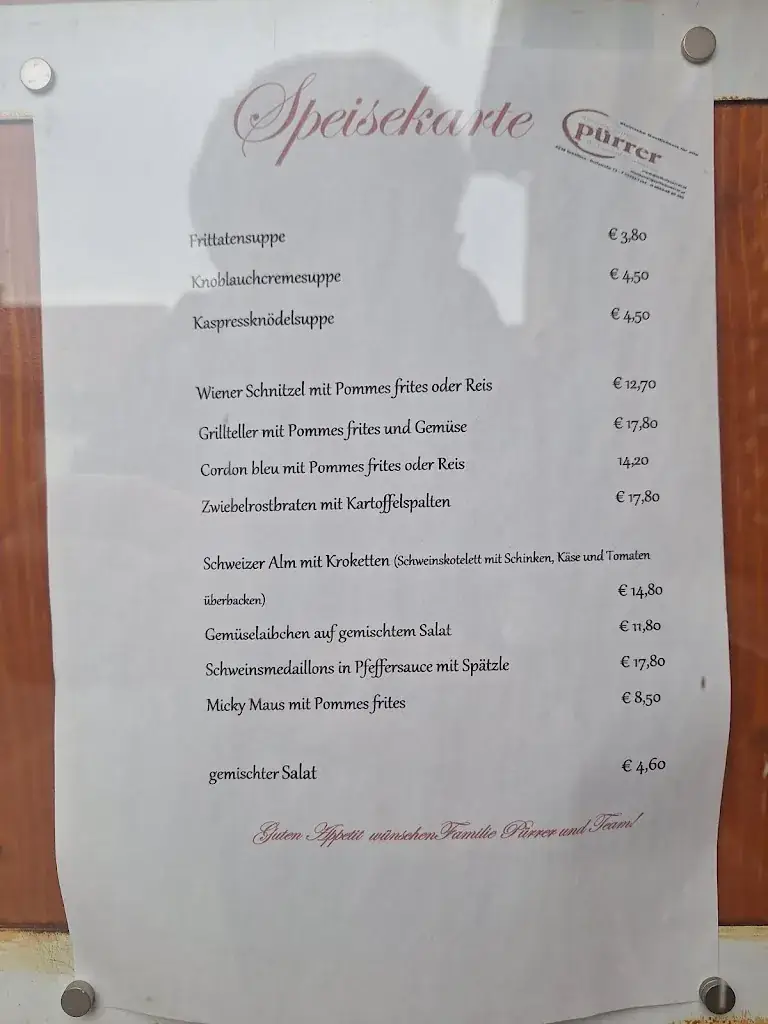 Speisekarte
pürrer
Frittatensuppe € 3,80
Knoblauchcremesuppe € 4,50
Kaspressknödelsuppe € 4,50
Wiener Schnitzel mit Pommes frites oder Reis € 12,70
Grillteller mit Pommes frites und Gemüse € 17,80
Cordon bleu mit Pommes frites oder Reis 14,20
Zwiebelrostbraten mit Kartoffelspalten € 17,80
Schweizer Alm mit Kroketten (Schweinskotelett mit Schinken, Käse und Tomaten
überbacken) € 14,80
Gemüselaibchen auf gemischtem Salat € 11,80
Schweinsmedaillons in Pfeffersauce mit Spätzle € 17,80
Micky Maus mit Pommes frites € 8,50
gemischter Salat € 4,60
Guten Appetit wünschen Familie Pürrer und Team!